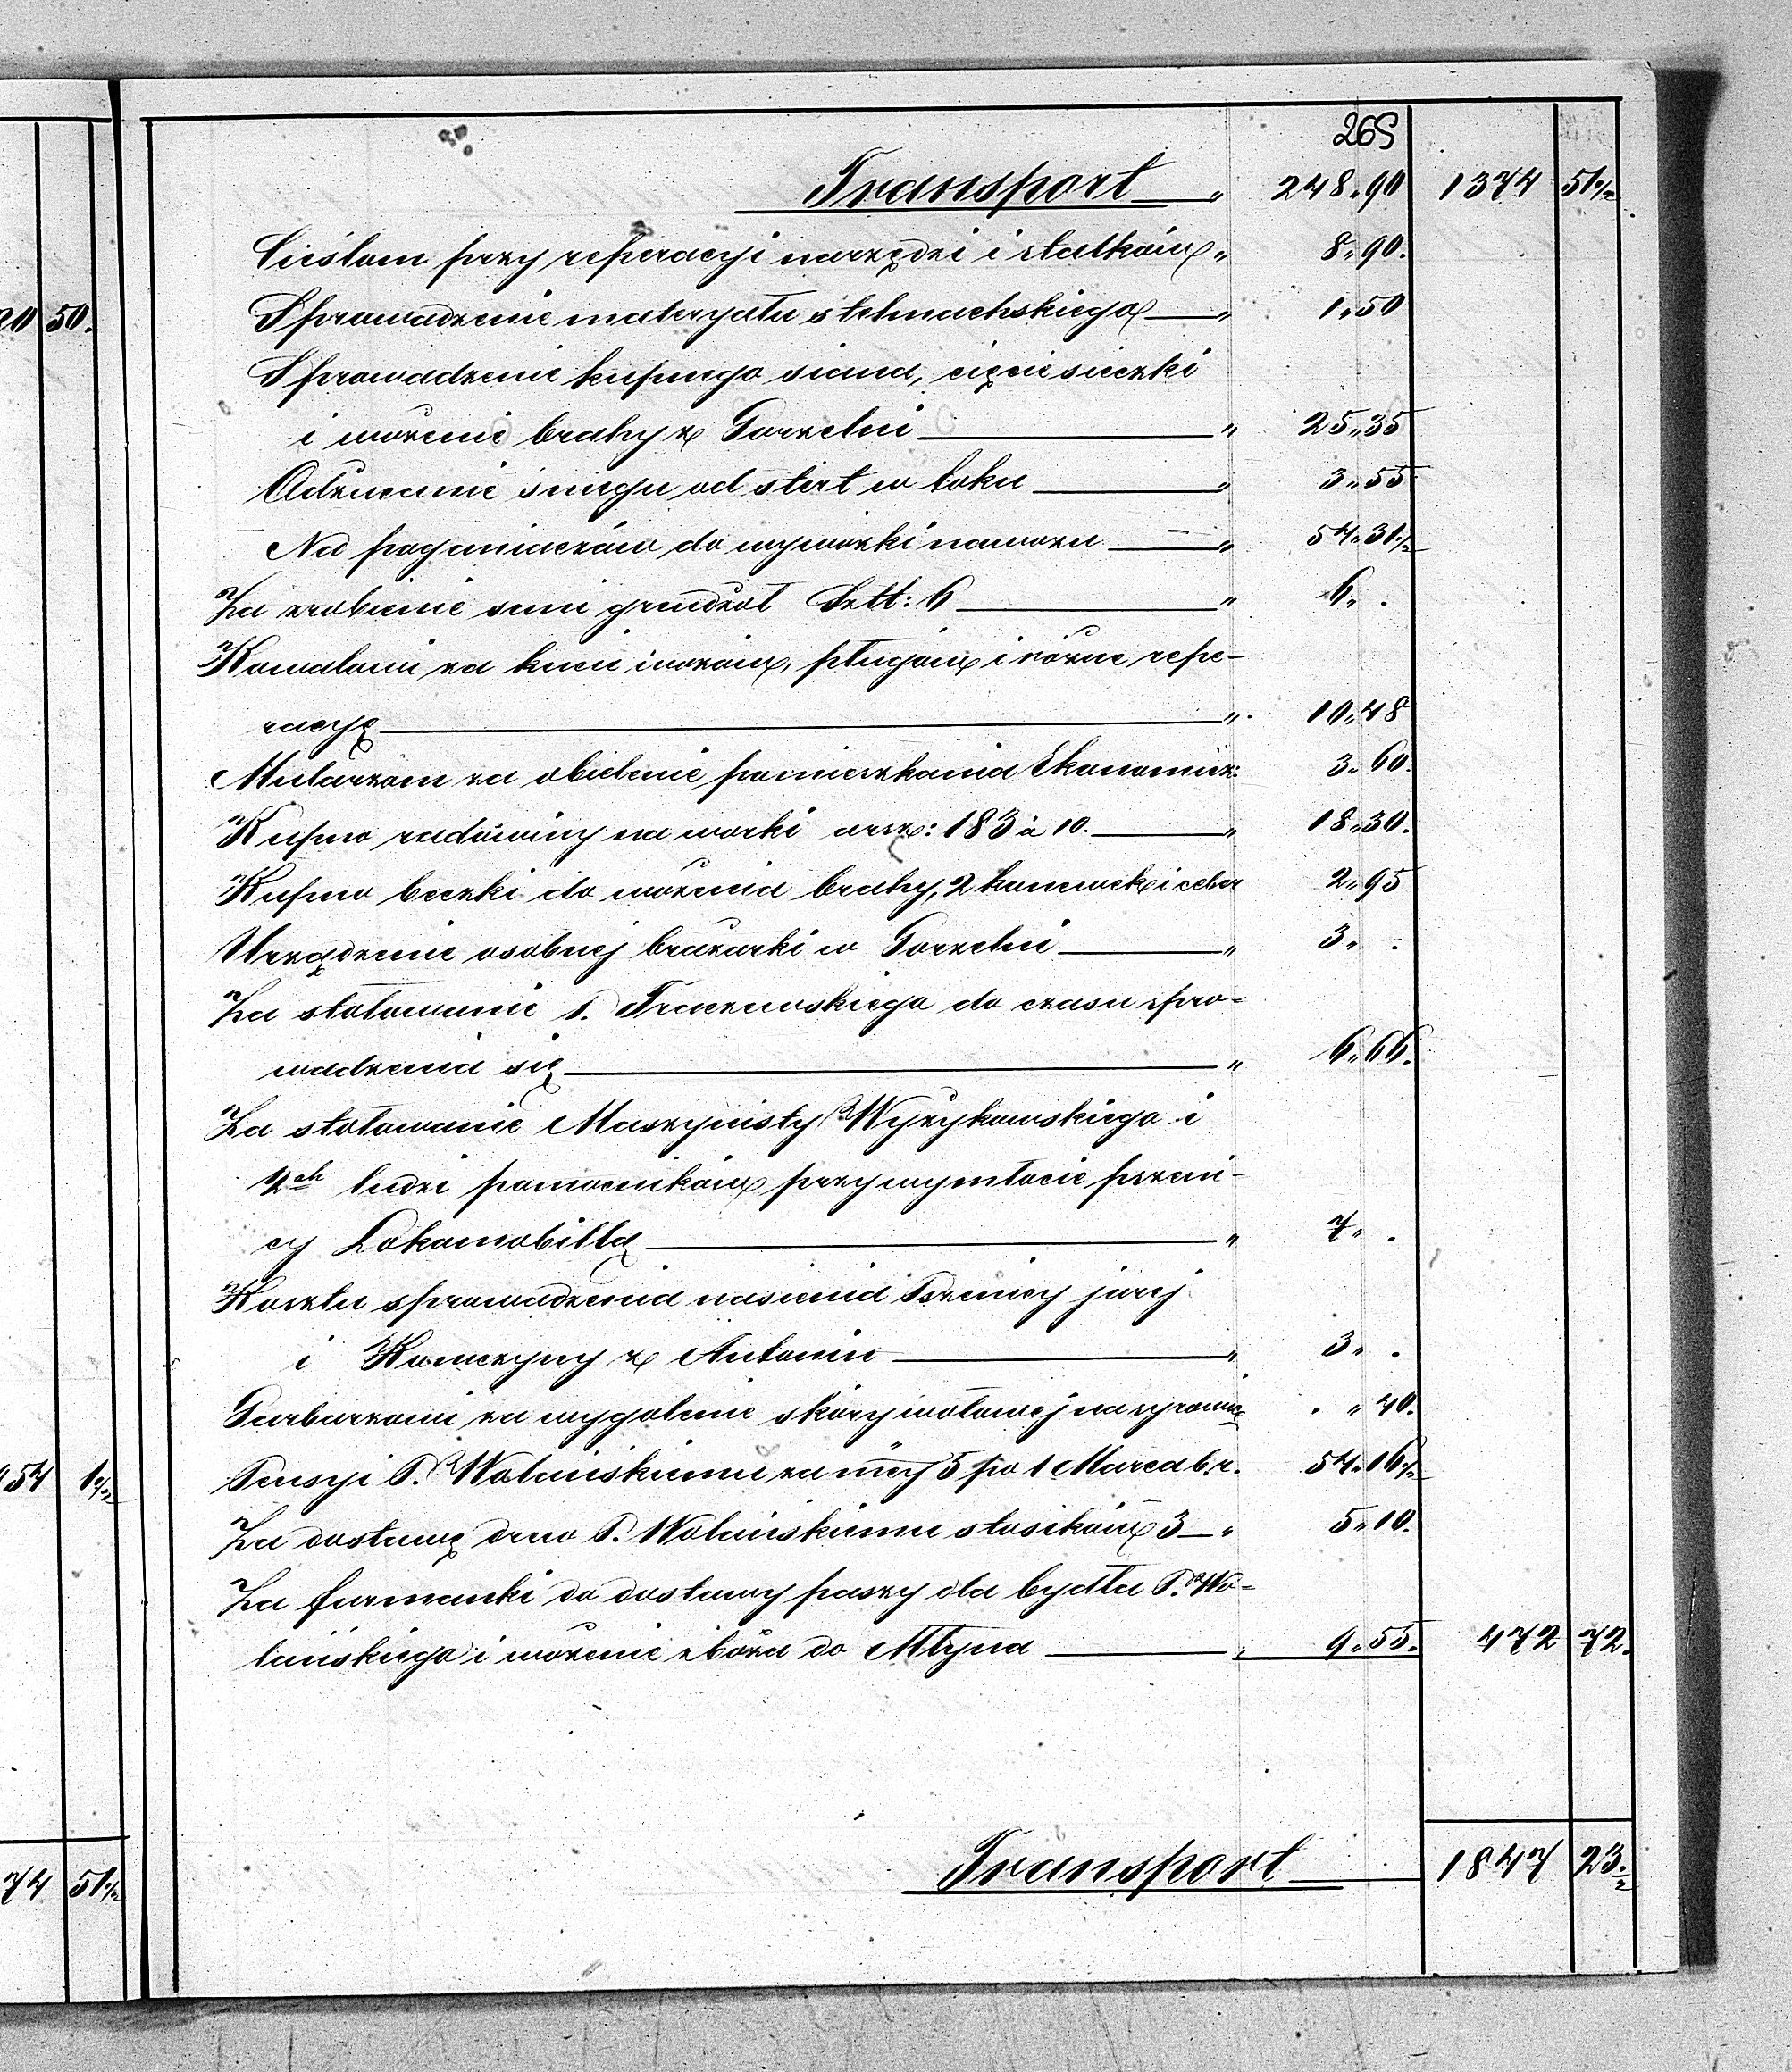 269
Transport " 248 " 90 1374 51 1/2
Cieślom przy reperacyi narzędzi i statków " 8 " 90.
Sprowadzenie materyału stelmachskiego " 1 " 50
Sprowadzenie kupnego siana, cięcie sieczki
i wożenie brahy z Gorzelni " 25 " 35
Odrzucanie śniegu od stert w toku " 3 " 55
Na poganiaczów do wywózki nawozu " 54 " 31 1/2
Za zrobienie sani grudzol Sztt: 6 " 6 " .
Kowalowi za kucie wozów, pługów i różne repe-
racyę " 10 " 48
Mularzom za obielenie pomieszkania Ekonomicz: 3 " 60.
Kupno radowiny na worki arsz: 183 à 10. " 18 " 30.
Kupno beczki do wożenia brahy, 2 konewek i ceber 2 " 95
Urządzenie osobnej brażarki w Gorzelni " 3 " .
Za stołowanie P. Traczewskiego do czasu spro-
wadzenia się " 6 " 66.
Za stołowanie Maszynisty Wyżykowskiego i
2ch ludzi pomocników przy wymłocie pszeni-
cy Lokomobillą " 7 " .
Kosztu sprowadzenia nasienia Pszenicy jarej
i Koniczyny z Antonin " 3 " .
Garbarzowi za wygolenie skóry wołowej na syrowicę . " 40.
Pensyi P. Wolańskiemu za mcy 5 po 1 Marca b.r. 54 " 16 1/2
Za dostawę drew P. Wolańskiemu stosików 3 " 5 " 10.
Za furmanki do dostawy paszy dla bydła P. Wo-
lańskiego i wożenie zboża do Młyna " 9 " 55. 472 72.
Transport 1847 23 1/2
20 50.
154 1 1/2
74 51 1/2